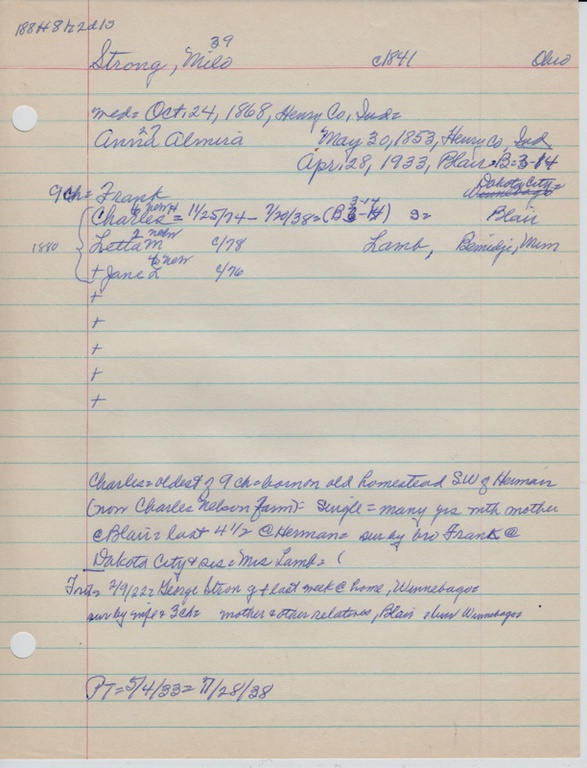 188H8 1z 2d 1S
39
Strong, Milo c1841 Ohio
med= Oct. 24, 1868, Henry Co, Ind=
27
Anna Almira May 30, 1853, Henry Co, Ind
Apr. 28, 1933, Blair= B= 3-14
9ch= Frank Dakota City= Winnebago
6 new H 3-14
Charles = 11/25/74 - 7/20/38 = (B ) 9= Blair
2 new
1880 Letta M c/78 Lamb, Bemidji, Minn
new
+ Jane L c/76
+
+
+
+
+
Charles= oldest of 9 ch= born on old homestead SW of Herman
(now Charles Nelson farm)= single = many yrs with mother
@ Blair= last 4 1/2 @ Herman= sur by bro Frank @
Dakota City & sis= Mrs Lamb= (
2/9/22= George Strong + last week @ home, Winnebago=
sur by wife & 3 ch= mother & other relatives, Blair = bur Winnebago=
PT= 5/4/33= 7/28/38